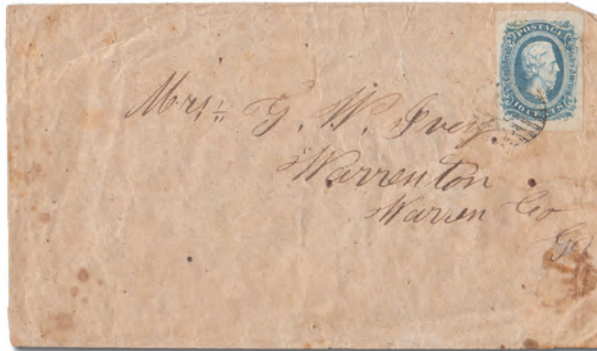 POSTAGE
TEN CENTS
Mrs. G. W. Ivey
Warrenton
Warren Co
Ga